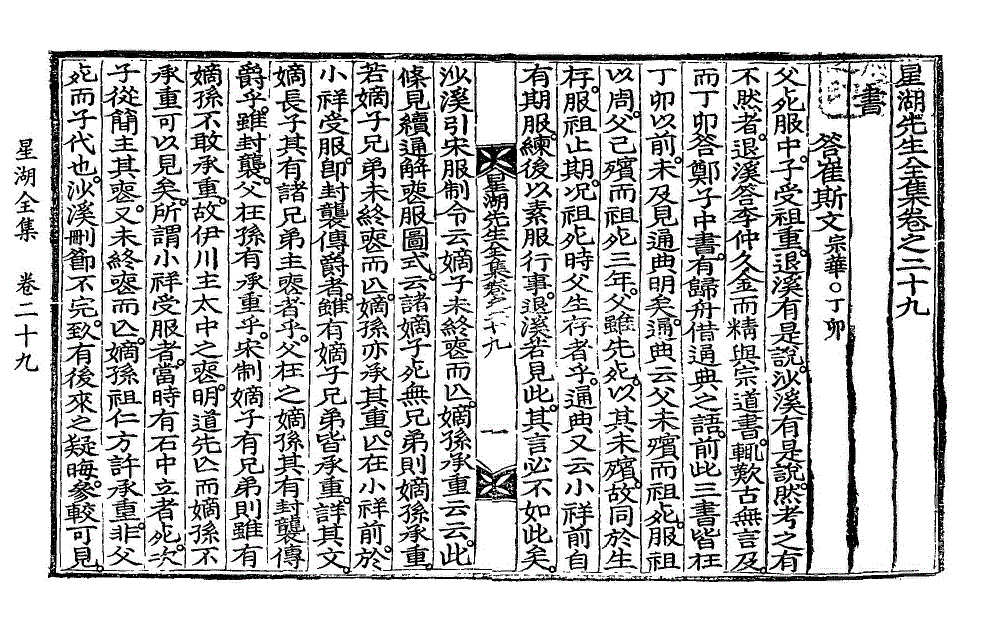 星湖先生全集卷之二十九
書
答崔斯文 宗華○丁卯
父死服中。子受祖重。退溪有是說。沙溪有是說。然考之有
不然者。退溪答李仲久金而精與宗道書。輒歎古無言及。
而丁卯答鄭子中書。有歸舟借通典之語。前此三書皆在
丁卯以前。未及見通典明矣。通典云父未殯而祖死。服祖
以周。父已殯而祖死三年。父雖先死。以其未殯。故同於生
存。服祖止期。况祖死時父生存者乎。通典又云小祥前自
有期服。練後以素服行事。退溪若見此。其言必不如此矣。
星湖先生全集卷之二十九 一
沙溪引宋服制令云嫡子未終喪而亡。嫡孫承重云云。此
條見續通解喪服圖式。云諸嫡子死無兄弟則嫡孫承重。
若嫡子兄弟未終喪而亡。嫡孫亦承其重。亡在小祥前。於
小祥受服。卽封襲傳爵者。雖有嫡子兄弟皆承重。詳其文。
嫡長子其有諸兄弟主喪者乎。父在之嫡孫其有封襲傳
爵乎。雖封襲。父在孫有承重乎。宋制嫡子有兄弟則雖有
嫡孫不敢承重。故伊川主太中之喪。明道先亡而嫡孫不
承重可以見矣。所謂小祥受服者。當時有石中立者死。次
子從簡主其喪。又未終喪而亡。嫡孫祖仁方許承重。非父
死而子代也。沙溪刪節不完。致有後來之疑晦。參較可見。
星湖全集 卷二十九